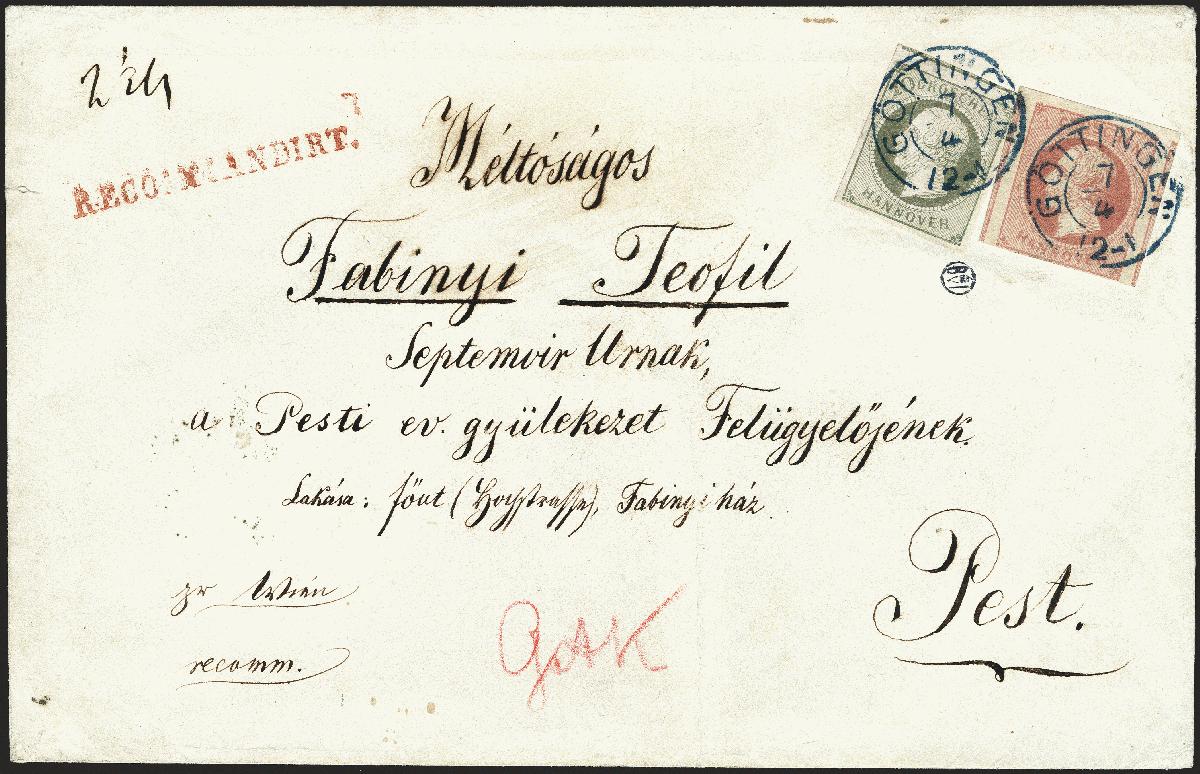 RECOMMANDIRT.
GÖTTINGEN
7
4
12-1
HANNOVER
GÖTTINGEN
7
4
12-1
Méltóságos
Fabinyi Teofil
Septemvir Urnak,
a Pesti ev. gyülekezet Felügyelőjének.
Lakása: főut (Hochstrasse), Fabinyi ház
pr Wien
recomm.
Pest.